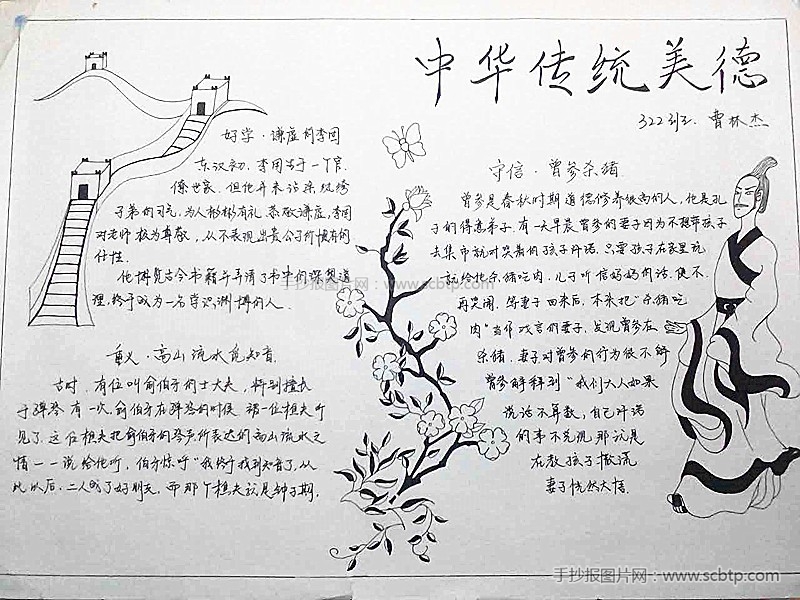 中华传统美德
322班 曹林杰
好学·谦虚的李固
东汉初,李固出于一个官
僚世家,但他并未沾染纨绔
子弟的习气,为人彬彬有礼,恭敬谦虚,李固
对老师极为尊敬,从不表现出贵公子的惯有的
任性.
他博览古今书籍并弄清了书中的深奥道
理,终于成为一名学识渊博的人.
重义·高山流水觅知音.
古时.有位叫俞伯牙的士大夫,特别擅长
于弹琴 有一次,俞伯牙在弹琴的时候 被一位樵夫听
见了.这位樵夫把俞伯牙的琴声所表达的高山流水之
情一一说给他听,伯牙惊呼"我终于找到知音了,从
此以后,二人成了好朋友,而那个樵夫就是钟子期.
守信·曾参杀猪.
曾参是春秋时期道德修养很高的人,他是孔
子的得意弟子.有一天早晨曾参的妻子因为不想带孩子
去集市就对哭着的孩子许诺.只要孩子在家里玩
就给他杀猪吃肉.儿子听信妈妈的话,便不
再哭闹.等妻子回来后.本来把"杀猪吃
肉"当作戏言的妻子,发现曾参在
杀猪.妻子对曾参的行为很不解
曾参解释到"我们大人如果
说话不算数,自己许诺
的事不兑现 那就是
在教孩子撒谎
妻子恍然大悟.
手抄报图片网:www.scbtp.com
手抄报图片网:www.scbtp.com